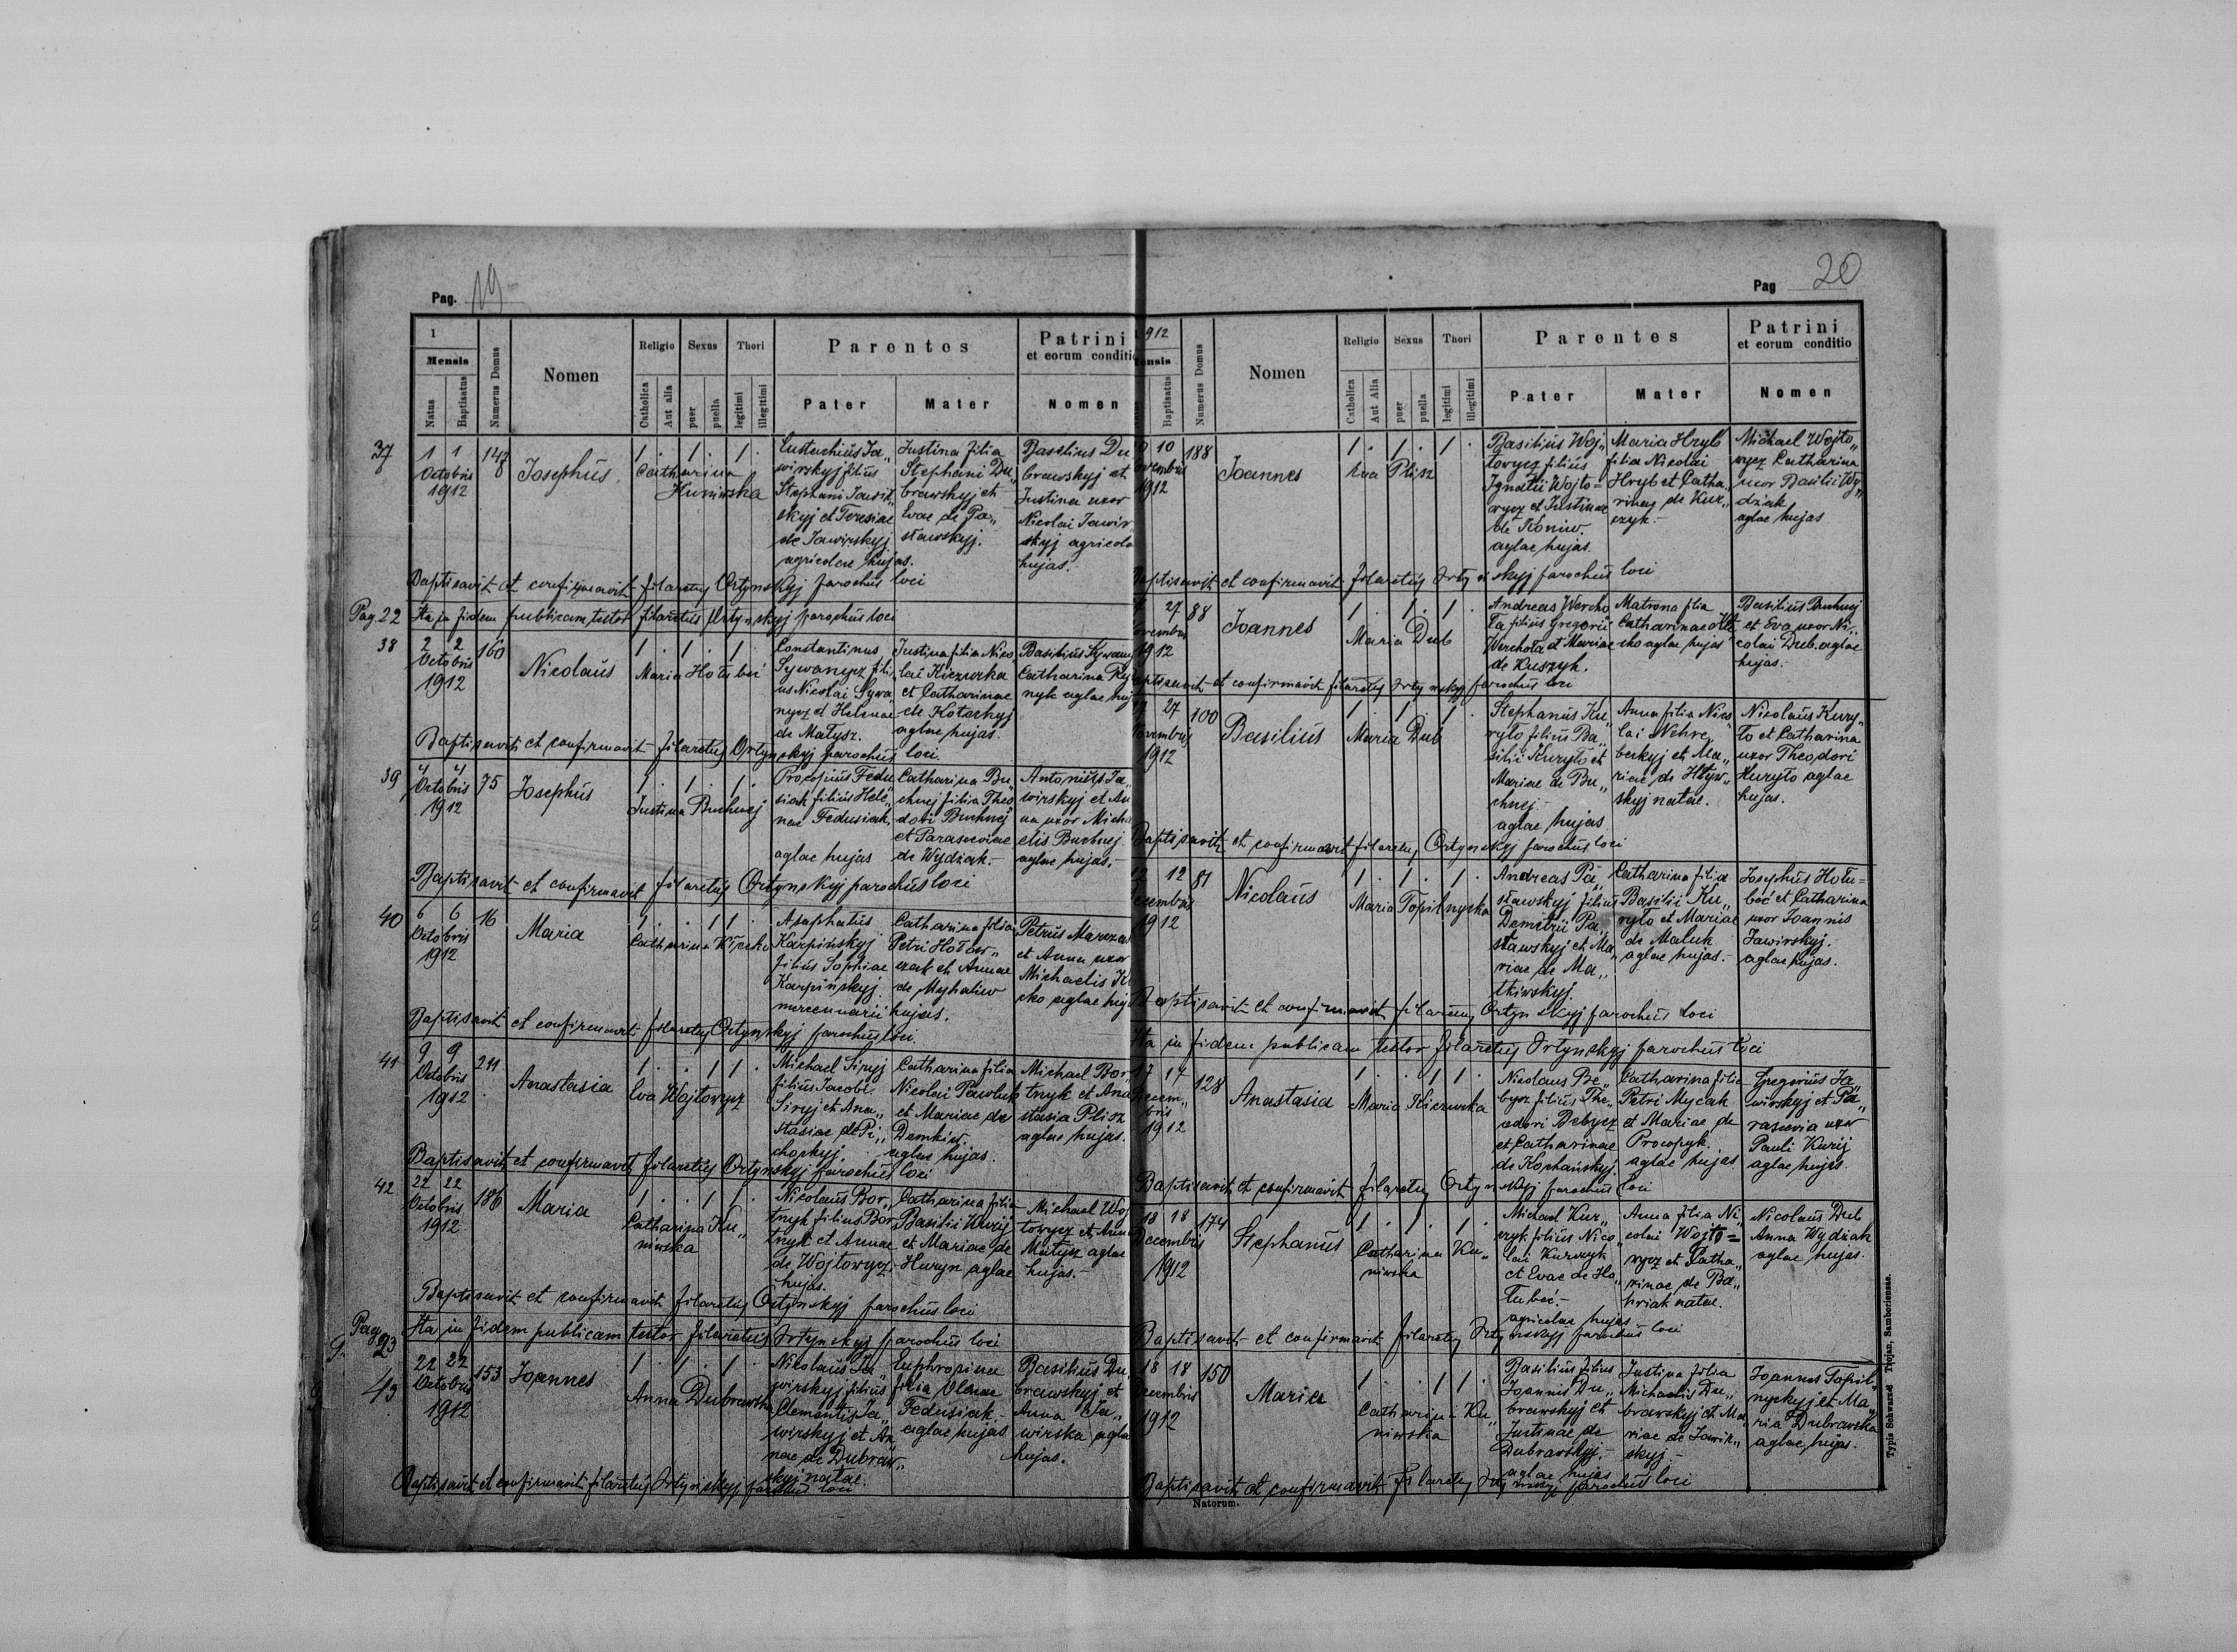 Pag. 19
1
Mensis
Natus
Baptisatus
Numerus Domus
Nomen
Religio
Catholica
Aut alia
Sexus
puer
puella
Thori
legitimi
illegitimi
Parentes
Pater
Mater
Patrini
et eorum conditio
Nomen
37
1 1
Octobris
1912
148
Josephus
1 . 1 . 1 .
Catharina
Kuniwska
Eustachius Ja„
wirskyj filius
Stephani Jawir„
skyj et Teresiae
de Jawirskyj
agricolae hujas.
Justina filia
Stephani Du„
brawskyj et
Evae de Pa„
sławskyj.
Basilius Du
brawskyj et
Justina uxor
Nicolai Jawir
skyj agricola
hujas.
Baptisavit et confirmavit filaretus Ortynskyj parochus loci
Pag 22
Ita in fidem publicam testor filaretus Ortynskyj parochus loci
38
2 2
Octobris
1912
160
Nicolaus
1 . 1 . 1 .
Maria Hołubeć
Constantinus
Sywanycz fili„
us Nicolai Sywa
nycz et Helenae
de Matysz.
Justina filia Nico„
lai Kiczurka
et Catharinae
de Kotackyj
aglae hujas.
Basilius Sywan
Catharina Ry
nyk aglae huj
Baptisavit et confirmavit filaretus Ortynskyj parochus loci.
39
4 4
Octobris
1912
75
Josephus
1 . 1 . 1 .
Justina Buchnej
Procopius Fedu
siak filius Hele„
nae Fedusiak.
aglae hujas
Catharina Bu„
chnej filia Theo
dori Buchnej
et Parasceviae
de Wydziak.-
Antonius Ja„
wirskyj et An
na uxor Micha
elis Buchnej
aglae hujas.-
Baptisavit et confirmavit filaretus Ortynskyj parochus loci
40
6 6
Octobris
1912
16
Maria
1 . . 1 1 .
Catharina
Asaphatus
Karpińskyj
filius Sophiae
Karpińskyj
mercenarii hujas.
Catharina filia
Petri Hołow„
czak et Annae
de Myhaliw
Petrus Marcza
et Anna uxor
Michaelis
aglae huj
Baptisavit et confirmavit filaretus Ortynskyj parochus loci.
41
9 9
Octobris
1912
211
Anastasia
1 . . 1 1 .
Eva Wojtowycz
Michael Siryj
filius Jacobi
Siryj et Ana„
stasiae de Pi„
chockyj.
Catharina filia
Nicolai Pawluk
et Mariae de
Demkiw.
aglae hujas.
Michael Bor„
tnyk et Ana
stasia Plisz
aglae hujas.
Baptisavit et confirmavit filaretus Ortynskyj parochus loci
42
22 22
Octobris
1912
186
Maria
1 . . 1 1 .
Catharina Ku„
niwska
Nicolaus Bor„
tnyk filius Bor
tnyk et Annae
de Wojtowycz
hujas.
Catharina filia
Basilii Kurij
et Mariae de
Huryn aglae
Michael Woj
towycz et Ann
Matysz aglae
hujas.-
Baptisavit et confirmavit filaretus Ortynskyj parochus loci
Pag 23
Ita in fidem publicam testor filaretus Ortynskyj parochus loci
43
22 22
Octobris
1912
153
Joannes
1 . 1 . 1 .
Anna Dubrawska
Nicolaus Ja„
wirskyj filius
Clementis Ja„
wirskyj et An„
nae de Dubraw„
skyj natae.
Euphrosina
filia Olenae
Fedusiak.
aglae hujas
Basilius Du
brawskyj et
Anna Ja„
wirska agla
hujas.
Baptisavit et confirmavit filaretus Ortynskyj parochus loci
Pag 20
912
Baptisatus
Numerus Domus
Nomen
Religio
Catholica
Aut Alia
Sexus
puer
puella
Thori
legitimi
illegitimi
Parentes
Pater
Mater
Patrini
et eorum conditio
Nomen
10
1912
188
Joannes
1 . 1 . 1 .
Eva Plisz
Basilius Woj„
towycz filius
Ignatii Wojto=
wycz et Justinae
de Roniw.
aglae hujas.
Maria Hryb
filia Nicolai
Hryb et Catha„
rinae de Kur„
czyk.-
Michael Wojto„
wycz Catharina
uxor Basilii Wy„
dziak
aglae hujas
Baptisavit et confirmavit filaretus Ortynskyj parochus loci
27
1912
88
Joannes
1 . 1 . 1 .
Maria Dub
Andreas Wercho
ła filius Gregorii
Werchoła et Mariae
de Kuszyk.
Matrona filia
Catharinae
aglae hujas
Basilius Buchnej
et Eva uxor Ni„
colai Dub. aglae
hujas.
Baptisavit et confirmavit filaretus Ortynskyj parochus loci
27
1912
100
Basilius
1 . 1 . 1 .
Maria Dub
Stephanus Ku„
ryło filius Ba„
silii Kuryło et
Mariae de Bu„
chnej.-
aglae hujas
Anna filia Nico„
lai Nehre„
beckyj et Ma„
riae de Hływ„
skyj natae.
Nicolaus Kury„
ło et Catharina
uxor Theodori
Kuryło aglae
hujas.
Baptisavit et confirmavit filaretus Ortynskyj parochus loci
12 12
1912
81
Nicolaus
1 . 1 . 1 .
Maria Topilnyska
Andreas Pa„
sławskyj filius
Demitrii Pa„
sławskyj et Ma„
riae de Ma„
tkiwskyj.
Catharina filia
Basilii Ku„
ryło et Mariae
de Maluk
aglae hujas.-
Josephus Hołu=
beć et Catharina
uxor Joannis
Jawirskyj.-
aglae hujas.
Baptisavit et confirmavit filaretus Ortynskyj parochus loci
Ita in fidem publicam testor filaretus Ortynskyj parochus loci
17 17
Decem„
bris
1912
128
Anastasia
1 . . 1 1 .
Maria Kiczurka
Nicolaus Be„
bycz filius The„
odori Bebycz
et Catharinae
de Kochańskyj.
Catharina filia
Petri Mycak
et Mariae de
Procopyk.
aglae hujas
Gregorius Ja„
wirskyj et Pa„
rascevia uxor
Pauli Kurij
aglae hujas.
Baptisavit et confirmavit filaretus Ortynskyj parochus loci
18 18
Decembris
1912
174
Stephanus
1 . 1 . 1 .
Catharina Ku„
niwska
Michael Kur„
czyk filius Nico„
lai Kurczyk
et Evae de Ho„
łubeć.-
agricolae hujas
Anna filia Ni„
colai Wojto=
wycz et Catha„
rinae de Ba„
hriak natae.
Nicolaus Dub
Anna Wydziak
aglae hujas.
Baptisavit et confirmavit filaretus Ortynskyj parochus loci
18 18
Decembris
1912
150
Maria
1 . . 1 1 .
Catharina Ku„
niwska
Basilius filius
Joannis Du„
brawskyj et
Justinae de
Dubrawskyj.-
aglae hujas
Justina filia
Michaelis Du„
brawskyj et Ma„
riae de Jawir„
skyj.-
Joannes Topil„
nyckyj et Ma„
ria Dubrawska
aglae hujas.
Baptisavit et confirmavit filaretus Ortynskyj parochus loci
Natorum.
Typis Schwarz & Trojan, Samboriensae.